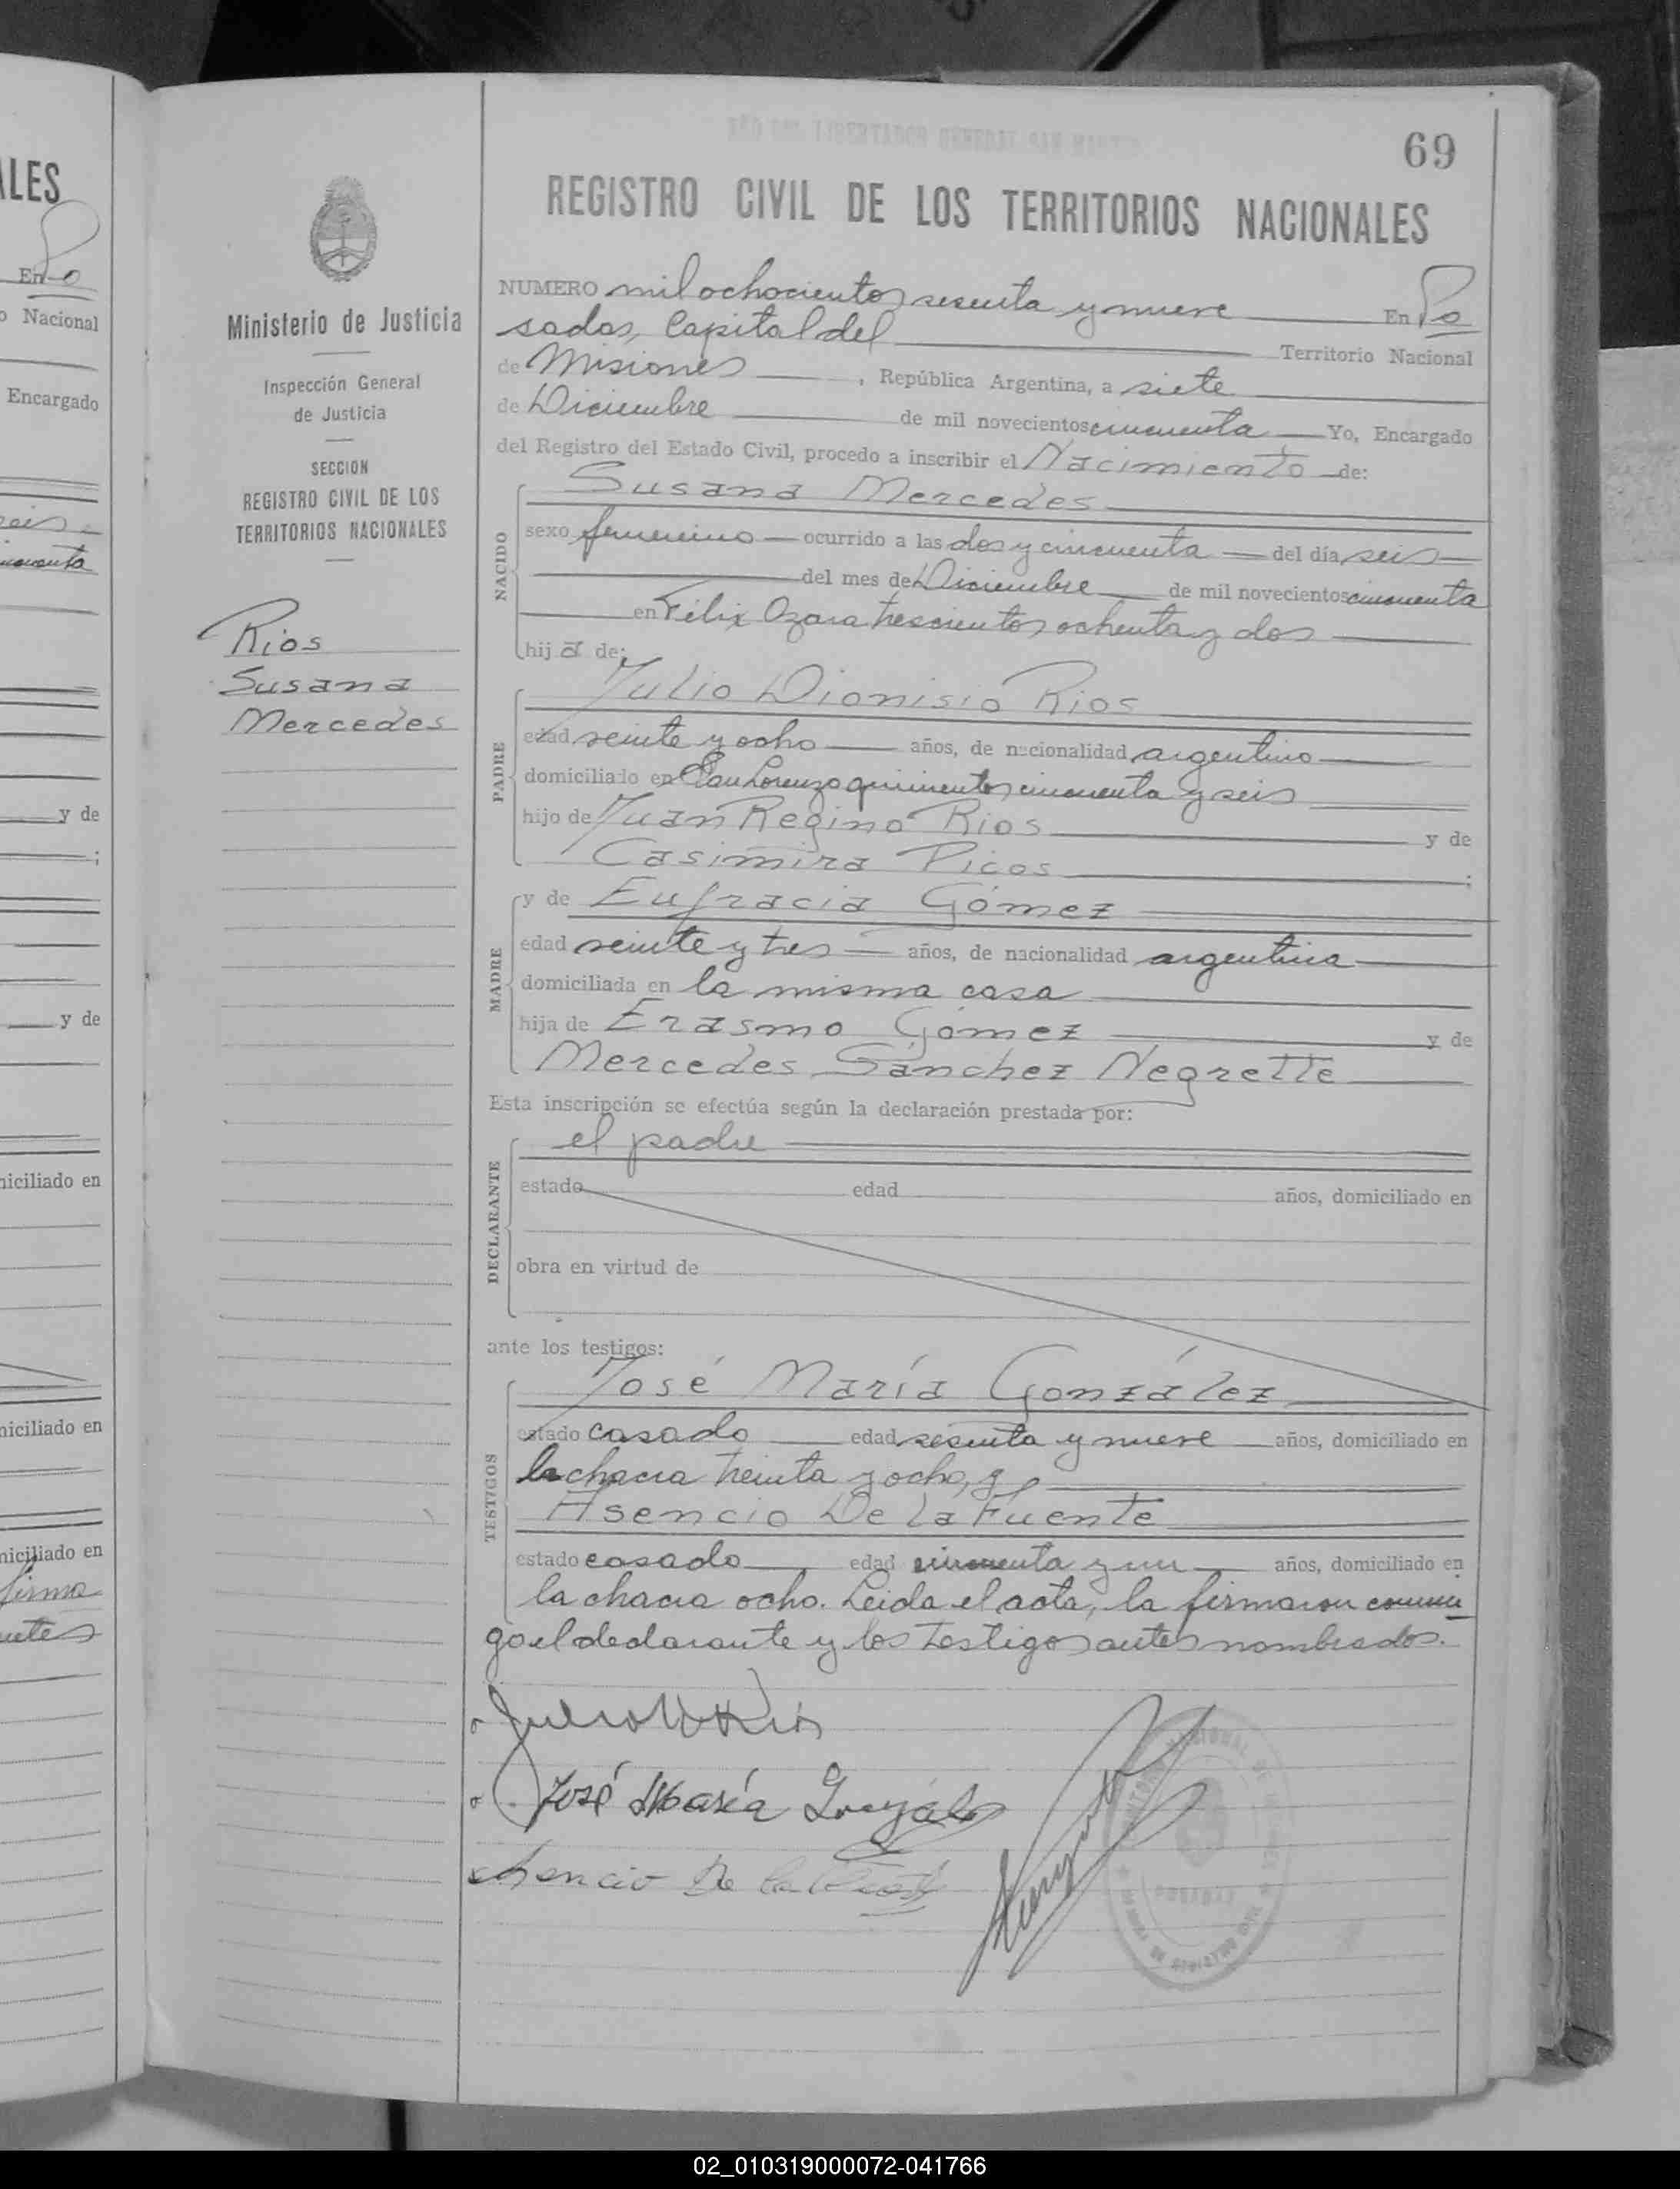 LES
En
Nacional
Encargado
y de
;
y de
iciliado en
iciliado en
iciliado en
firma
Ministerio de Justicia
Inspección General
de Justicia
SECCION
REGISTRO CIVIL DE LOS
TERRITORIOS NACIONALES
Rios
Susana
Mercedes
AÑO DEL LIBERTADOR GENERAL SAN MARTIN
69
REGISTRO CIVIL DE LOS TERRITORIOS NACIONALES
NUMERO mil ochocientos sesenta y nueve En Po
sadas, Capital del Territorio Nacional
de Misiones, República Argentina, a siete
de Diciembre de mil novecientos cincuenta Yo, Encargado
del Registro del Estado Civil, procedo a inscribir el Nacimiento de:
NACIDO
Susana Mercedes
sexo femenino ocurrido a las dos y cincuenta del día seis
del mes de Diciembre de mil novecientos cincuenta
en Félix Azara trescientos ochenta y dos
hij a de:
PADRE
Julio Dionisio Rios
edad veinte y ocho años, de nacionalidad argentino
domiciliado en San Lorenzo quinientos cincuenta y seis
hijo de Juan Regino Rios y de
Casimira Picos ;
MADRE
y de Eufracia Gómez
edad veinte y tres años, de nacionalidad argentina
domiciliada en la misma casa
hija de Erasmo Gómez y de
Mercedes Sanchez Negrette
Esta inscripción se efectúa según la declaración prestada por:
DECLARANTE
el padre
estado edad años, domiciliado en
obra en virtud de
ante los testigos:
TESTIGOS
José María González
estado casado edad sesenta y nueve años, domiciliado en
la chacra treinta y ocho, y
Asencio De La Fuente
estado casado edad cincuenta y un años, domiciliado en
la chacra ocho. Leida el acta, la firmaron conmi
go el declarante y los testigos antes nombrados.
Julio D. Rios
José María González
Asencio De la Fuente
POSADAS
02_010319000072-041766